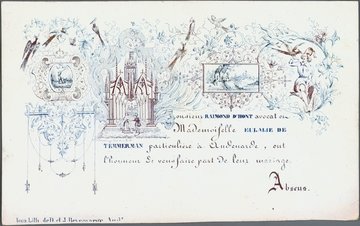 Monsieur RAIMOND D'HONT avocat et
Mademoiselle EULALIE DE
TEMMERMAN particulière à Audenarde, ont
l'honneur de vous faire part de leur mariage.
Absens.
Lith. de D. et J.